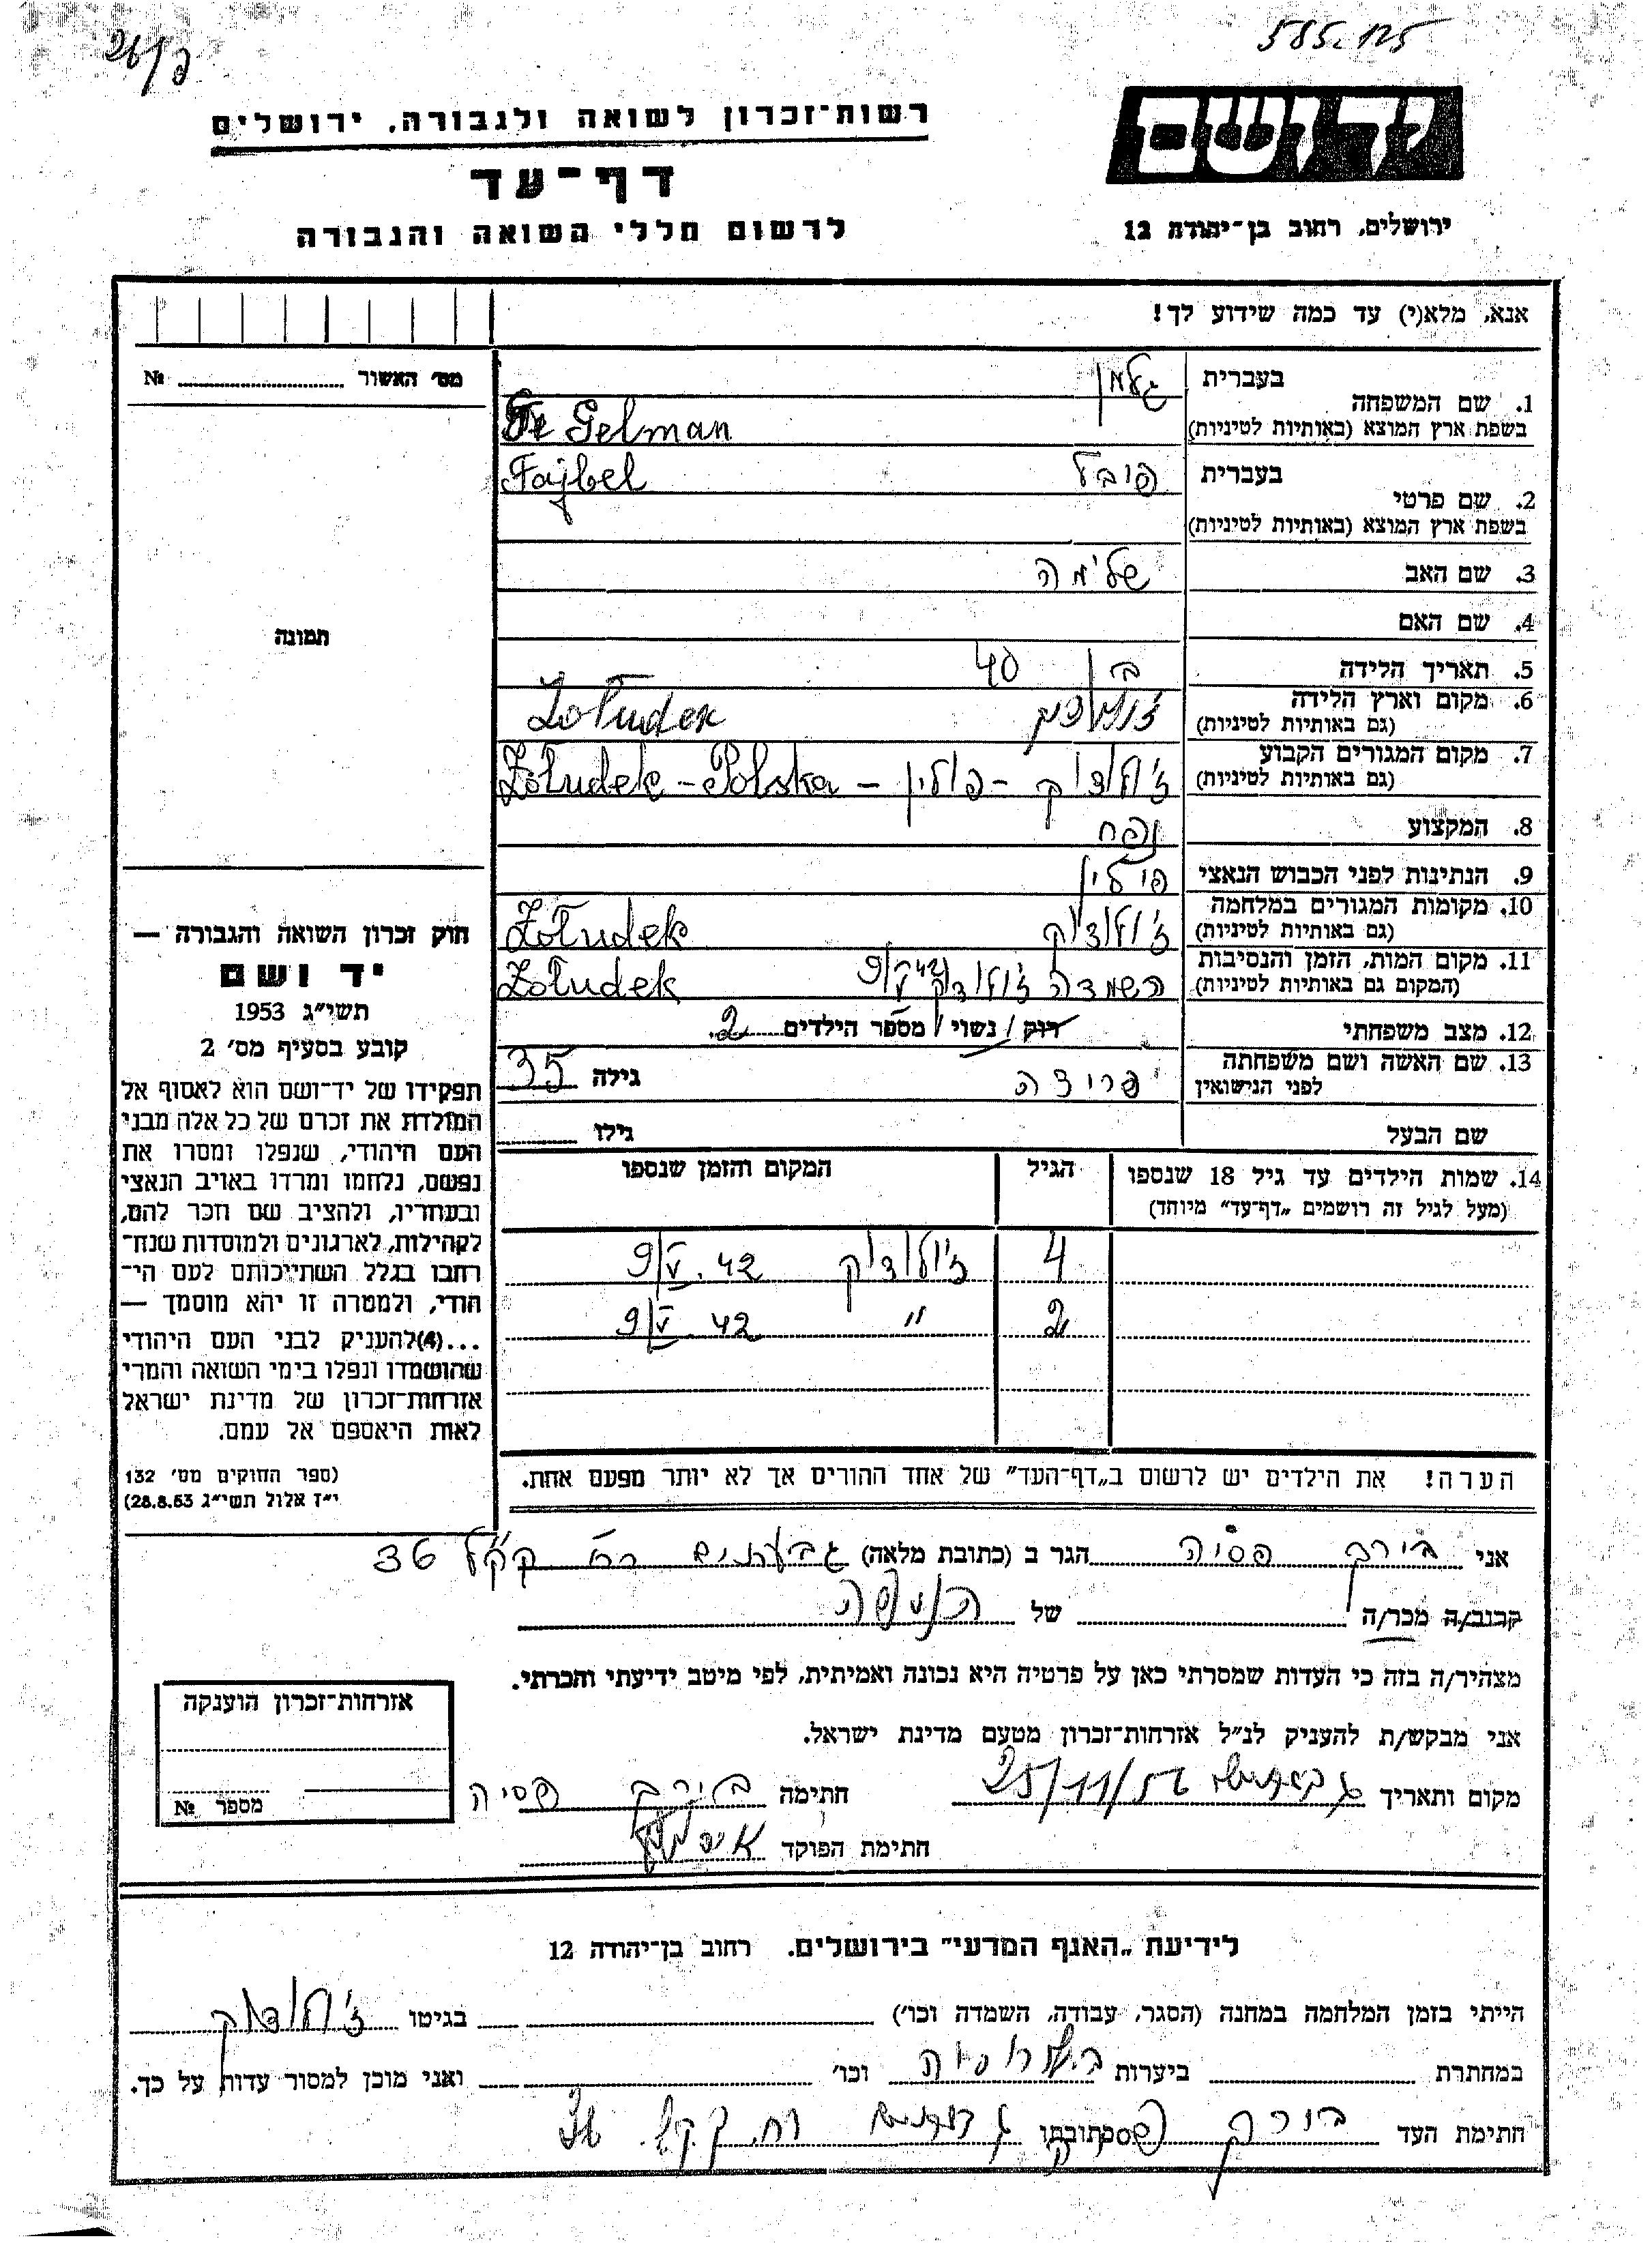 585.125
רשות־זכרון לשואה ולגבורה, ירושלים
דף־עד
לרשום חללי השואה והגבורה
יד ושם
ירושלים, רחוב בן־יהודה 12
אנא, מלא(י) עד כמה שידוע לך!
מס׳ האשור № ........
תמונה
1. שם המשפחה
בעברית גלמן
בשפת ארץ המוצא (באותיות לטיניות) Gelman
2. שם פרטי
בעברית פיבל Fajbel
בשפת ארץ המוצא (באותיות לטיניות)
3. שם האב שלימה
4. שם האם
5. תאריך הלידה בן 40
6. מקום וארץ הלידה
(גם באותיות לטיניות) Żołudek
7. מקום המגורים הקבוע
(גם באותיות לטיניות) ז'ולודוק - פולין - Żołudek - Polska
8. המקצוע נפח
9. הנתינות לפני הכבוש הנאצי פולין
10. מקומות המגורים במלחמה
(גם באותיות לטיניות) ז'ולודוק Żołudek
11. מקום המות, הזמן והנסיבות
(המקום גם באותיות לטיניות) השמדה ז'ולודוק 9/V 42 Żołudek
12. מצב משפחתי רוק / נשוי / מספר הילדים 2
13. שם האשה ושם משפחתה
לפני הנישואין פרידה גילה 35
שם הבעל גילו
14. שמות הילדים עד גיל 18 שנספו
(מעל לגיל זה רושמים „דף־עד" מיוחד)
הגיל
המקום והזמן שנספו
4 ז'ולודוק 9/V. 42
2 " 9/V. 42
הערה! את הילדים יש לרשום ב„דף־העד" של אחד ההורים אך לא יותר מפעם אחת.
חוק זכרון השואה והגבורה —
יד ושם
תשי״ג 1953
קובע בסעיף מס׳ 2
תפקידו של יד־ושם הוא לאסוף אל
המולדת את זכרם של כל אלה מבני
העם היהודי, שנפלו ומסרו את
נפשם, נלחמו ומרדו באויב הנאצי
ובעוזריו, ולהציב שם וזכר להם,
לקהילות, לארגונים ולמוסדות שנח־
רחבו בגלל השתייכותם לעם הי־
הודי, ולמטרה זו יהא מוסמך —
...(4)להעניק לבני העם היהודי
שהושמדו ונפלו בימי השואה והמרי
אזרחות־זכרון של מדינת ישראל
לאות היאספם אל עמם.
(ספר החוקים מס׳ 132
י״ז אלול תשי״ג 28.8.53)
אני בירק פסיה הגר ב (כתובת מלאה) גבעתיים רח קק״ל 36
קרוב/ה מכר/ה של
מצהיר/ה בזה כי העדות שמסרתי כאן על פרטיה היא נכונה ואמיתית, לפי מיטב ידיעתי והכרתי.
אני מבקש/ת להעניק לנ״ל אזרחות־זכרון מטעם מדינת ישראל.
מקום ותאריך גבעתיים 25/11/56 חתימה בירק פסיה
חתימת הפוקד
אזרחות־זכרון הוענקה
מספר №
לידיעת „האגף המדעי" בירושלים. רחוב בן־יהודה 12
הייתי בזמן המלחמה במחנה (הסגר, עבודה, השמדה וכו׳) בגיטו ז'ולודוק
במחתרת ביערות וכו׳ ואני מוכן למסור עדות על כך.
חתימת העד בורק כתובתו גבעתיים רח. ק.ק.ל. 36